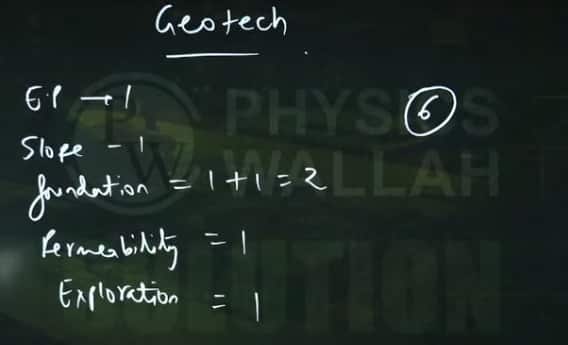 Geotech
E.P → 1
6
Slope - 1
foundation = 1 + 1 = 2
Permeability = 1
Exploration = 1
PHYSICS
WALLAH
SOLUTION